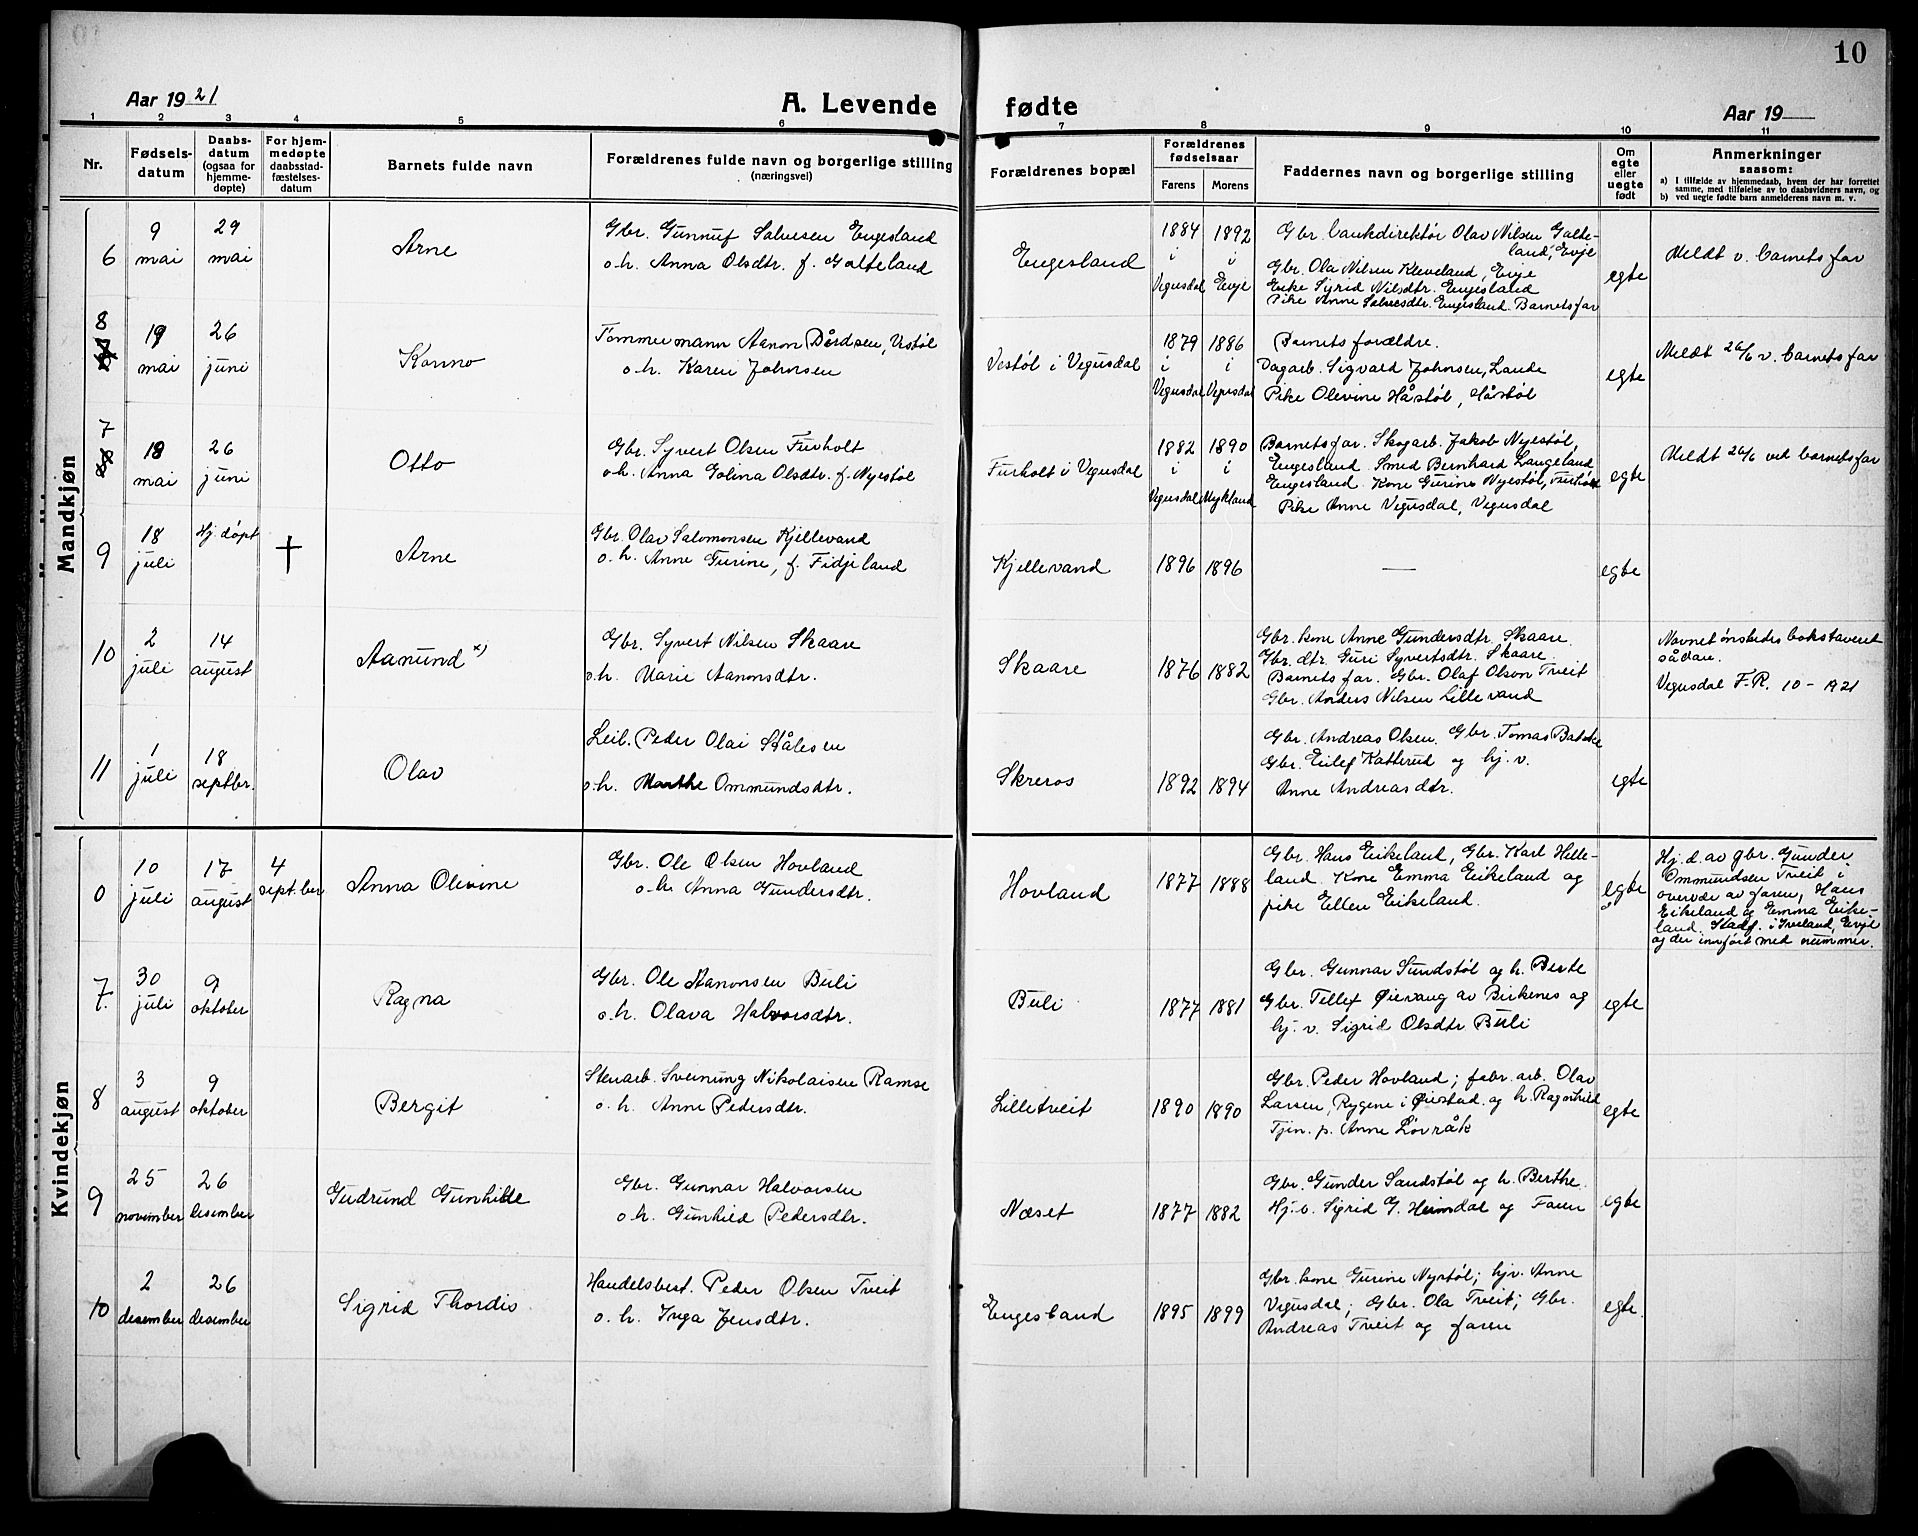 10
Aar 1921
A. Levende
fødte
Aar 19
1 2 3 4 5 6 7 8 9 10 11
Nr.
Fødsels-
datum
Daabs-
datum
(ogsaa for
hjemme-
døpte)
For hjem-
medøpte
daabsstad-
fæstelses-
datum
Barnets fulde navn
Forældrenes fulde navn og borgerlige stilling
(næringsvei)
Forældrenes bopæl
Forældrenes
fødselsaar
Farens Morens
Faddernes navn og borgerlige stilling
Om
egte
eller
uegte
født
Anmerkninger
saasom:
a) I tilfælde av hjemmedaab, hvem der har forrettet
samme, med tilføielse av to daabsvidners navn, og
b) ved uegte fødte barn anmelderens navn m. v.
Mandkjøn
6
9
mai
29
mai
Arne
Gbr. Gunnuf Salvesen Engesland
o.h. Anna Olsdtr. f. Galteland
Engesland
1884 1892
i i
Vegusdal Evje
Gbr. bankdirektør Olav Nilsen Galte-
land, Evje
Gbr. Ola Nilsen Kleveland, Evje
Enke Sigrid Nilsdtr. Engesland
Pike Anne Salvesdtr. Engesland. Barnets far
egte
Meldt v. barnets far
8
19
mai
26
juni
Konno
Tømmermann Aanon Bårdsen, Vestøl
o.h. Karen Johnsen
Vestøl i Vegusdal
1879 1886
i i
Vegusdal Vegusdal
Barnets forældre.
Dagarb. Sigvald Johnsen, Lande
Pike Olevine Håstøl, Håstøl
egte
Meldt 26/6 v. barnets far
7
18
mai
26
juni
Otto
Gbr. Syvert Olsen Furholt
o.h. Anna Golina Olsdtr. f. Nyestøl
Furholt i Vegusdal
1882 1890
i i
Vegusdal Mykland
Barnets far. Skogarb. Jakob Nyestøl,
Engesland. Smed Bernhard Langeland
Engesland. Kone Gurine Nyestøl,
Pike Anne Vegusdal, Vegusdal
egte
Meldt 26/6 ved barnets far
9
18
juli
Hj. døpt
†
Arne
Gbr. Olav Salomonsen Kjellevand
o.h. Anne Gurine, f. Fidjeland
Kjellevand
1896 1896
—
egte
10
2
juli
14
august
Aanund x)
Gbr. Syvert Nilsen Skaare
o.h. Marie Aanonsdtr.
Skaare
1876 1882
Gbr. kone Anne Gundersdtr. Skaare.
Gbr. dtr. Guri Syvertsdtr. Skaare.
Barnets far. Gbr. Olaf Olson Tveit
Gbr. Anders Nilsen Lillevand
Navnet ønskedes bokstaveret
sådan.
Vegusdal F.R. 10 - 1921
11
1
juli
18
septbr.
Olav
Leib. Peder Olai Stålesen
o.h. Marthe Ommundsdtr.
Skreros
1892 1894
Gbr. Andreas Olsen. Gbr. Tomas
Gbr. Eilef Katterud og hj. v.
Anne Andreasdtr.
egte
Kvindekjøn
0
10
juli
17
august
4
septber
Anna Olevine
Gbr. Ole Olsen Hovland
o.h. Anna Gundersdtr.
Hovland
1877 1888
Gbr. Hans Eikeland, Gbr. Karl Helle-
land. Kone Emma Eikeland og
pike Ellen Eikeland.
egte
Hj. d. av gbr. Gunder
Ommundsen Tveit i
overvær av faren, Hans
Eikeland og Emma Eike-
land. Stadf. i Iveland, Evje
og der innført med nummer.
7.
30
juli
9
oktober
Ragna
Gbr. Ole Aanonsen Buli
o.h. Olava Halvorsdtr.
Buli
1877 1881
Gbr. Gunnar Sundstøl og h. Berte
Gbr. Tellef Øievang av Birkenes og
hj. v. Sigrid Olsdtr Buli
egte
8
3
august
9
oktober
Bergit
Stenarb. Sveinung Nikolaisen Ramse
o.h. Anne Pedersdtr.
Lilletveit
1890 1890
Gbr. Peder Hovland; fabr. arb. Olav
Larsen, Rygene i Øiestad og h. Ragnhild
Tjen. p. Anne Løvråk
egte
9
25
november
26
desember
Gudrund Gunhilde
Gbr. Gunnar Halvorsen
o.h. Gunhild Pedersdtr.
Næset
1877 1882
Gbr. Gunder Sandstøl og h. Berthe.
Hj. v. Sigrid G. Heimdal og Faren
egte
10
2
desember
26
desember
Sigrid Thordis
Handelsbest. Peder Olsen Tveit
o.h. Inga Jensdtr.
Engesland
1895 1899
Gbr. kone Gurine Nystøl; hjv. Anne
Vegusdal; Gbr. Ola Tveit; Gbr.
Andreas Tveit og faren
egte.